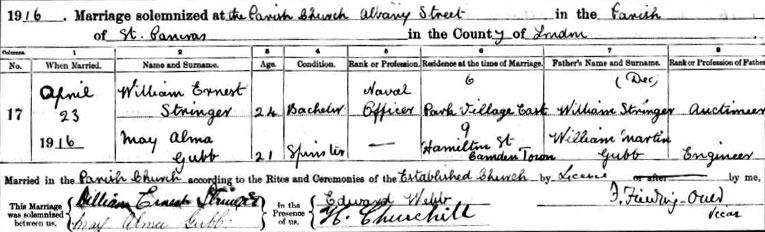 1916. Marriage solemnized at the Parish Church Albany Street in the Parish
of St. Pancras in the County of London
Columns. 1 2 3 4 5 6 7 8
No. When Married. Name and Surname. Age. Condition. Rank or Profession. Residence at the time of Marriage. Father's Name and Surname. Rank or Profession of Father
17 April 23 1916 William Ernest Stringer 24 Bachelor Naval Officer 6 Park Village East William Stringer (Dec) Auctioneer
May Alma Gubb 21 Spinster — 9 Hamilton St Camden Town William Martin Gubb Engineer
Married in the Parish Church according to the Rites and Ceremonies of the Established Church by Licence or after — by me,
This Marriage was solemnized between us, William Ernest Stringer May Alma Gubb In the Presence of us, Edward Webb H. Churchill Vicar